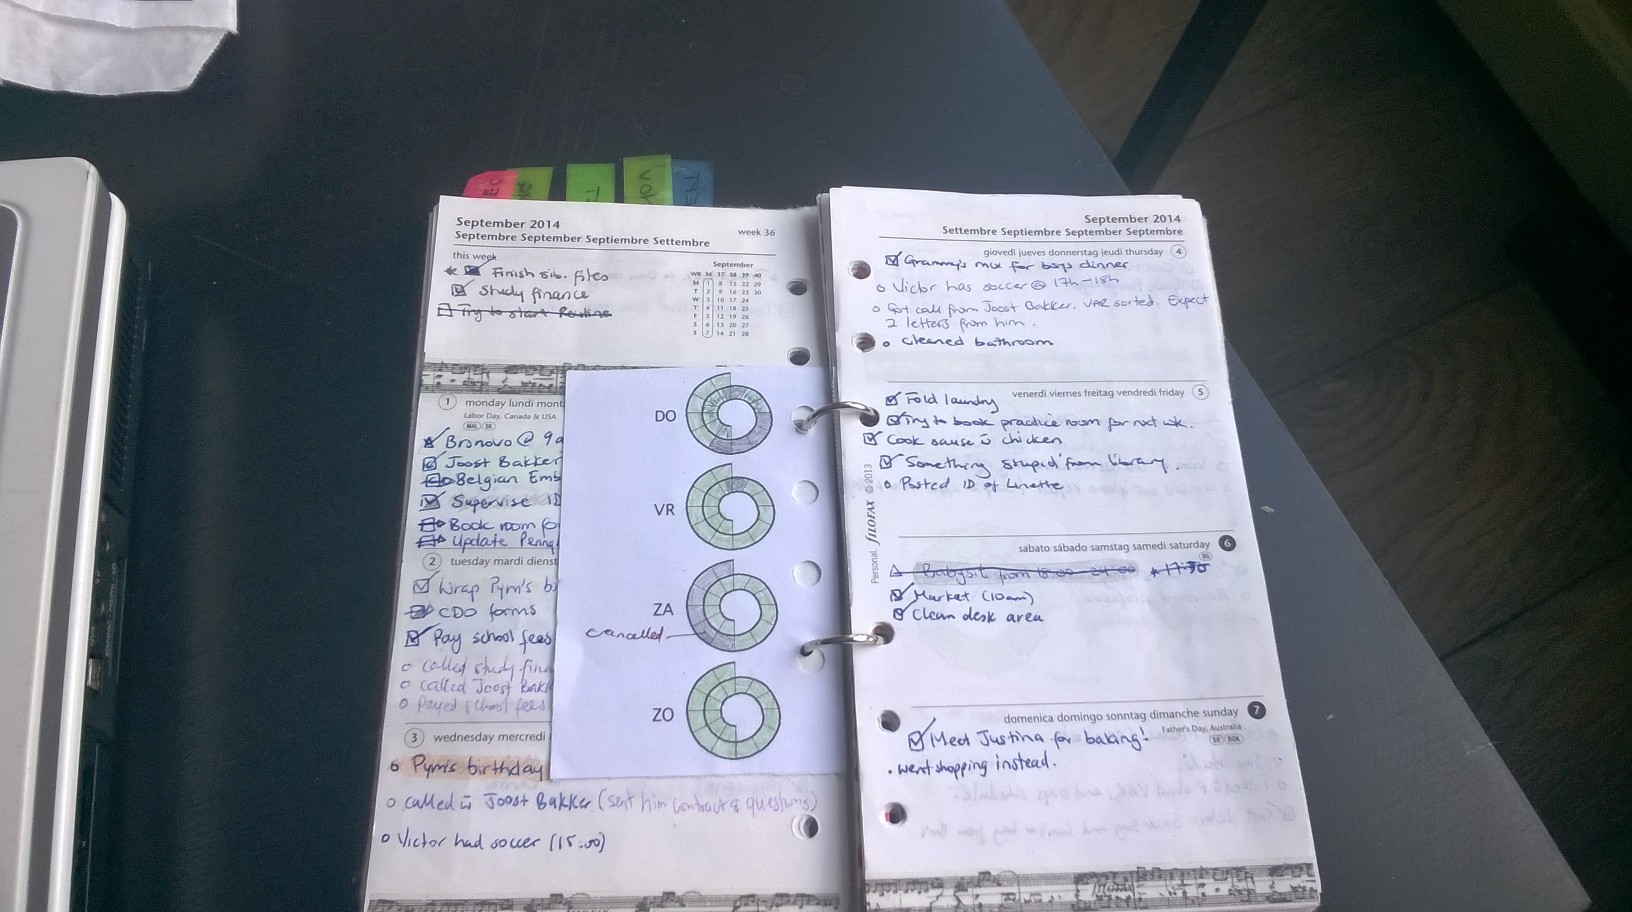 September 2014
Septembre September Septiembre Settembre
week 36
this week
Finish sib. files
Study finance
Try to start Routine
September
WK 36 37 38 39 40
M 1 8 15 22 29
T 2 9 16 23 30
W 3 10 17 24
T 4 11 18 25
F 5 12 19 26
S 6 13 20 27
S 7 14 21 28
1 monday lundi mont
Labor Day, Canada & USA
MAL SK
Bronovo @ 9a
Joost Bakker
Belgian Emb
Supervise ID
Book room fo
Update Penny
2 tuesday mardi dienst
Wrap Pym's bi
CDO forms
Pay school fees
called study fina
called Joost Bakk
Payed school fees
3 wednesday mercredi
Pym's birthday
called Joost Bakker (sent him contract & questions)
Victor had soccer (15:00)
DO
VR
ZA
cancelled
ZO
September 2014
Settembre Septiembre September Septembre
giovedì jueves donnerstag jeudi thursday 4
Grammy's mix for boys dinner
Victor has soccer @ 17h-18h
Got call from Joost Bakker. VAR sorted. Expect
2 letters from him.
cleaned bathroom
venerdì viernes freitag vendredi friday 5
Fold laundry
Try to book practice room for nxt wk.
Cook sause chicken
Something stupid from library.
Posted ID of Linette
Personal filofax © 2013
sabato sábado samstag samedi saturday 6
BG
Babysit from 18:00-24:00
Market (10am)
Clean desk area
domenica domingo sonntag dimanche sunday 7
Father's Day, Australia
BR ROK
Meet Justina for baking!
went shopping instead.